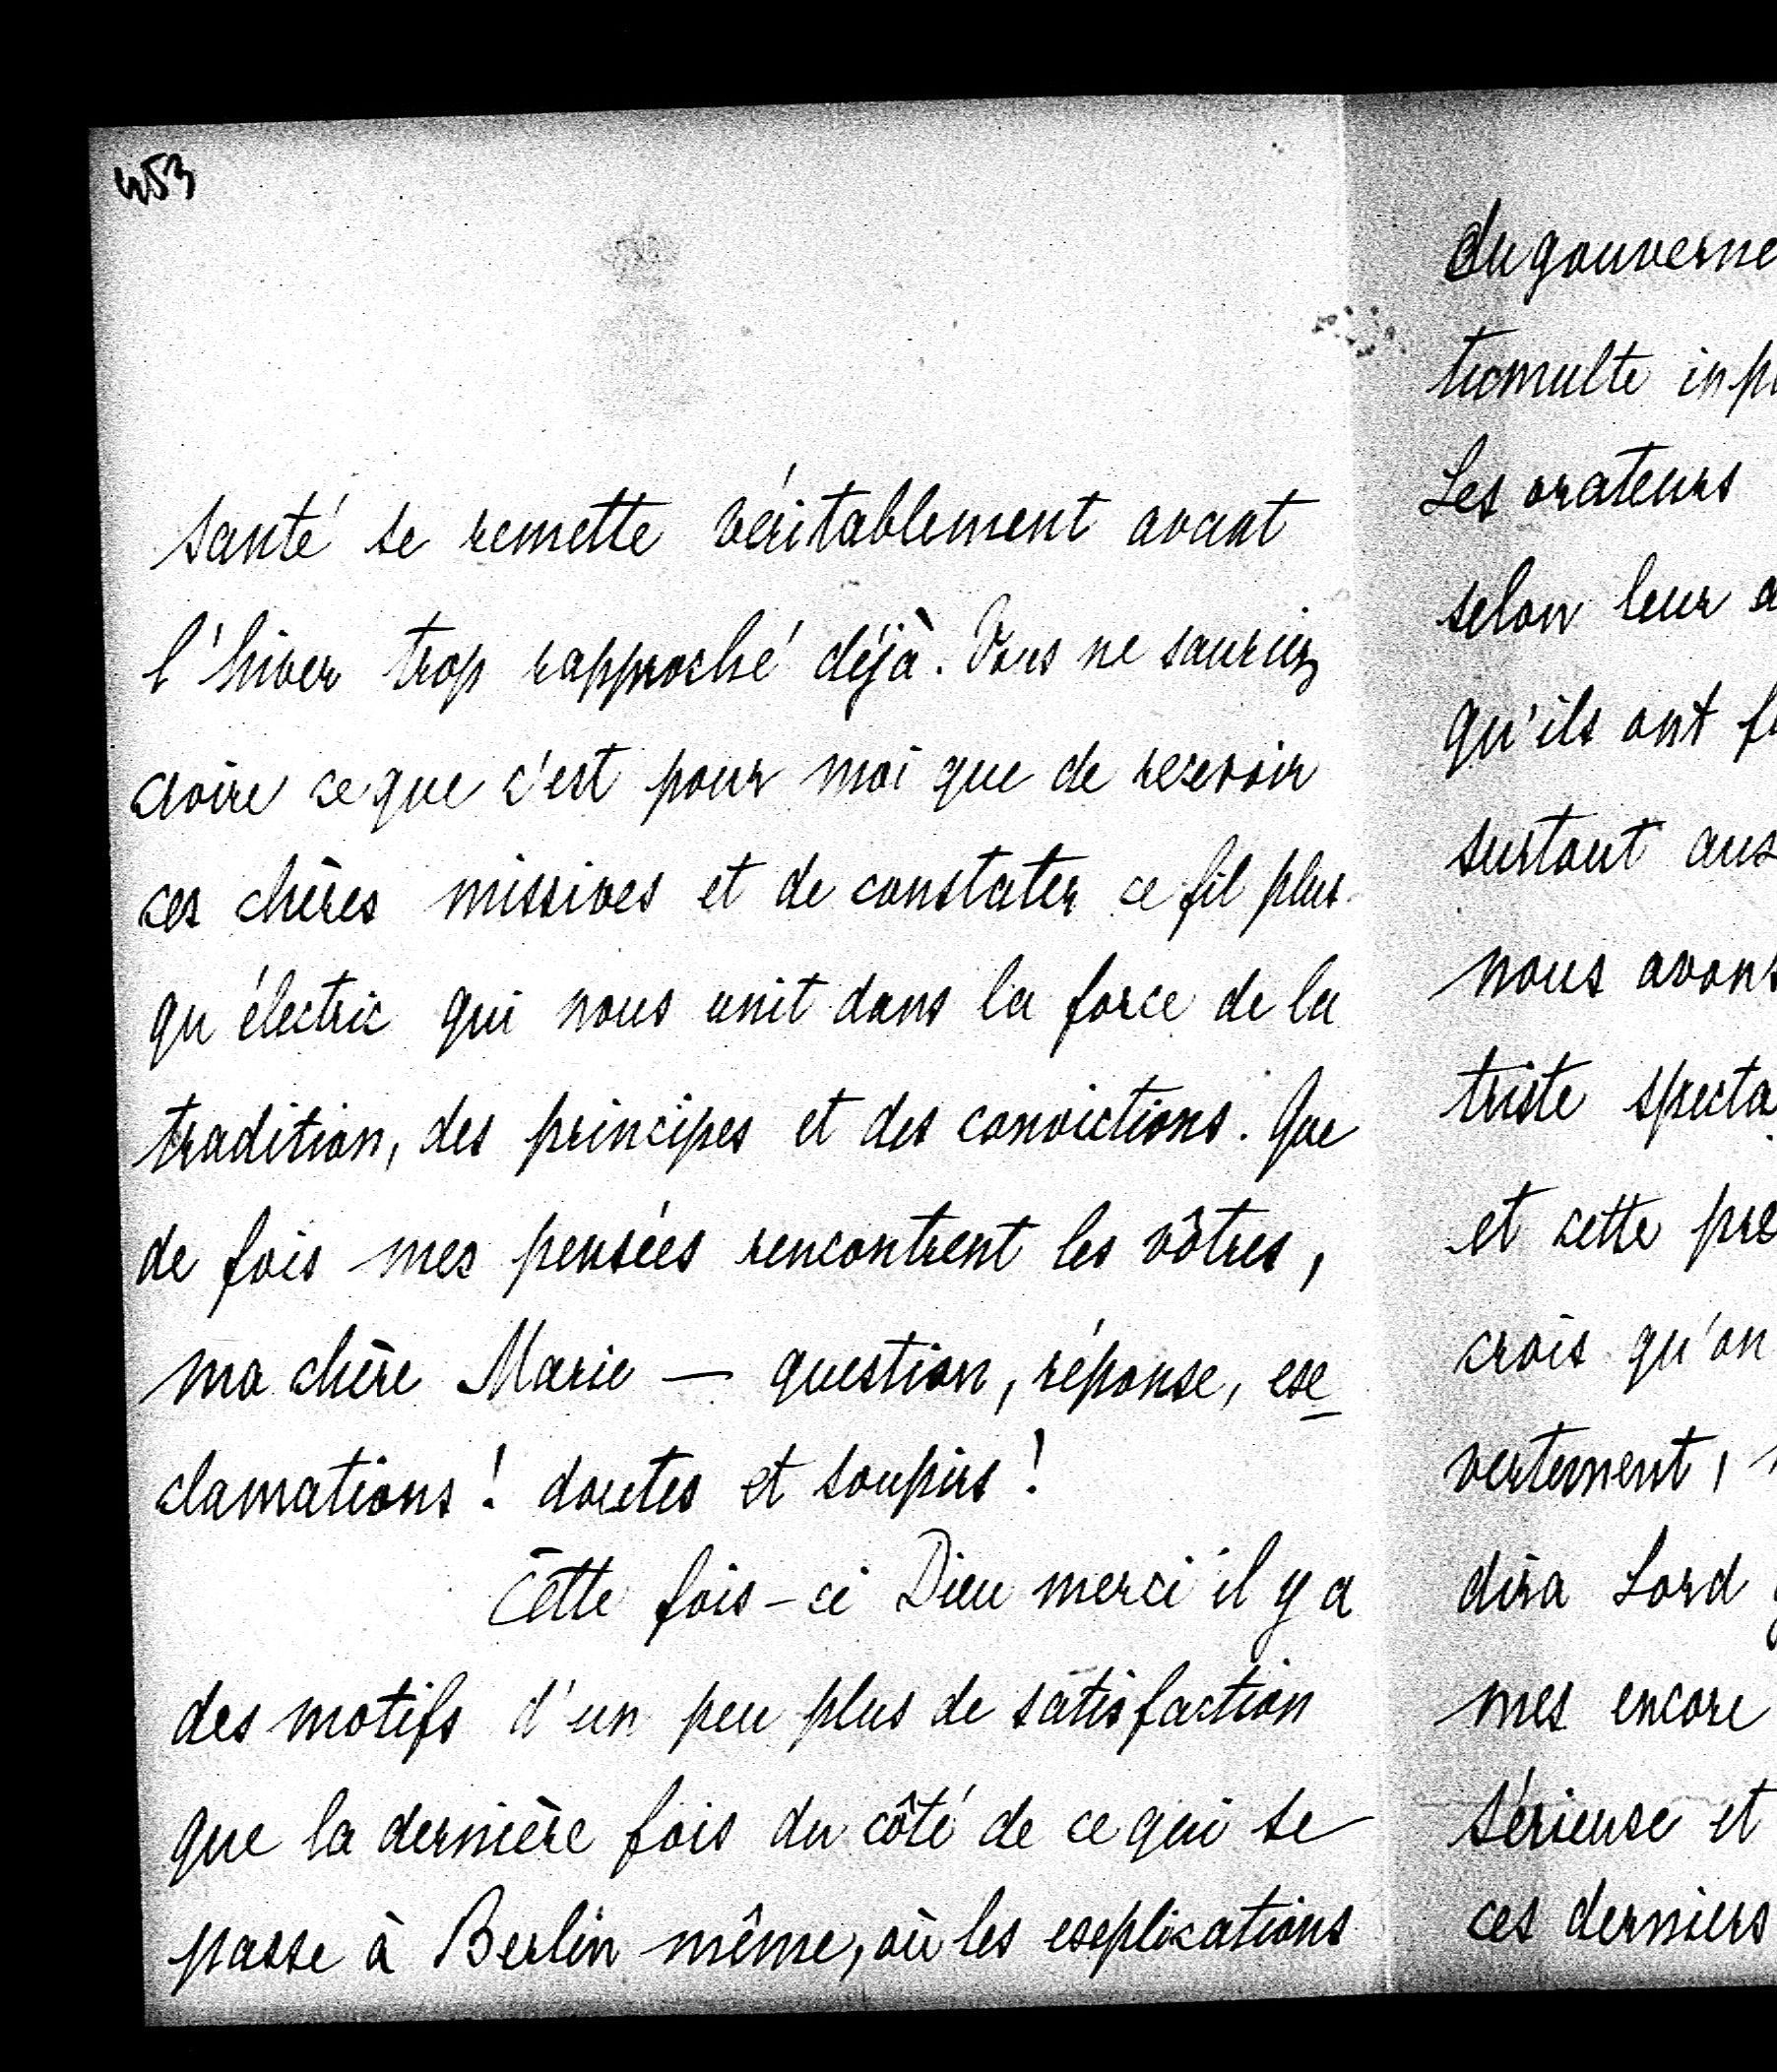 453
santé se remette véritablement avant
l'hiver trop rapproché déjà. Vous ne sauriez
croire ce que c'est pour moi que de recevoir
ces chères missives et de constater ce fil plus
qu'électric qui nous unit dans la force de la
tradition, des principes et des convictions. Que
de fois mes pensées rencontrent les vôtres,
ma chère Marie — question, réponse, ex
clamations! doutes et soupirs!
Cette fois-ci Dieu merci il y a
des motifs d'un peu plus de satisfaction
que la dernière fois du côté de ce qui se
passe à Berlin même, où les explications
du gouverne
tumulte inpr
Les orateurs
selon leur a
qu'ils ont f
surtout aus
nous avons
triste specta
et cette pre
crois qu'on
vertement,
dira Lord
mes encore
sérieuse et
ces derniers